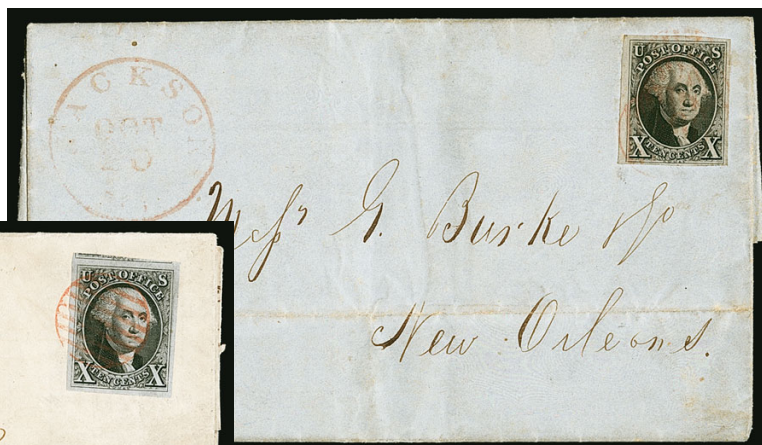 JACKSON
OCT
20
U S
POST OFFICE
X TEN CENTS X
Messrs G. Burke & Co
New Orleans.
U S
POST OFFICE
X TEN CENTS X